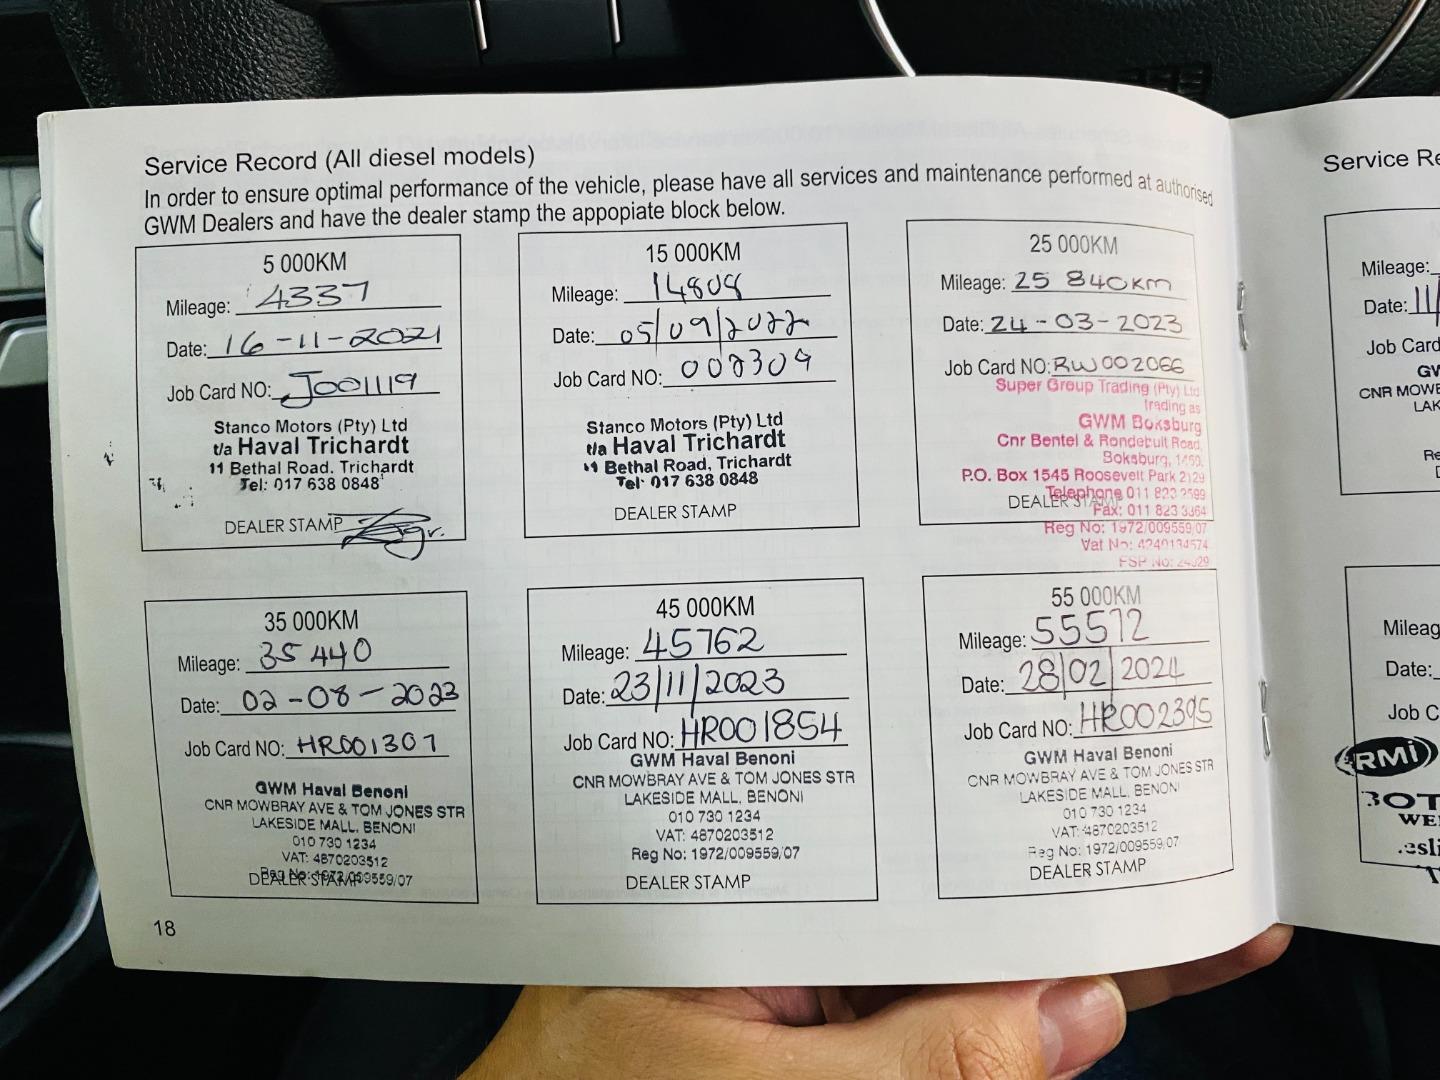 Service Record (All diesel models)
In order to ensure optimal performance of the vehicle, please have all services and maintenance performed at authorised
GWM Dealers and have the dealer stamp the appopiate block below.
5 000KM
Mileage: 4337
Date: 16-11-2021
Job Card NO: J001119
Stanco Motors (Pty) Ltd
t/a Haval Trichardt
11 Bethal Road, Trichardt
Tel: 017 638 0848
DEALER STAMP
15 000KM
Mileage: 14808
Date: 05/09/2022
Job Card NO:
Stanco Motors (Pty) Ltd
t/a Haval Trichardt
11 Bethal Road, Trichardt
Tel: 017 638 0848
DEALER STAMP
25 000KM
Mileage: 25 840km
Date: 24-03-2023
Job Card NO: RW002066
Super Group Trading (Pty) Ltd
trading as
GWM Boksburg
Cnr Bentel & Rondebult Road,
Boksburg, 1459.
P.O. Box 1545 Roosevelt Park 2129
Telephone 011 823 2599
DEALER STAMP
Fax: 011 823 3364
Reg No: 1972/009559/07
Vat No: 4240134574
FSP No: 24029
35 000KM
Mileage: 35 440
Date: 02-08-2023
Job Card NO: HR001307
GWM Haval Benoni
CNR MOWBRAY AVE & TOM JONES STR
LAKESIDE MALL, BENONI
010 730 1234
VAT: 4870203512
Reg No: 1972/009559/07
DEALER STAMP
45 000KM
Mileage: 45762
Date: 23/11/2023
Job Card NO: HR001854
GWM Haval Benoni
CNR MOWBRAY AVE & TOM JONES STR
LAKESIDE MALL, BENONI
010 730 1234
VAT: 4870203512
Reg No: 1972/009559/07
DEALER STAMP
55 000KM
Mileage: 55572
Date: 28/02/2024
Job Card NO: HR002395
GWM Haval Benoni
CNR MOWBRAY AVE & TOM JONES STR
LAKESIDE MALL, BENONI
010 730 1234
VAT: 4870203512
Reg No: 1972/009559/07
DEALER STAMP
18
Service Re
Mileage:
Date: 11/
Job Card
GW
CNR MOWB
LAK
Re
D
Mileag
Date:
Job C
RMi
BOT
WE
esli